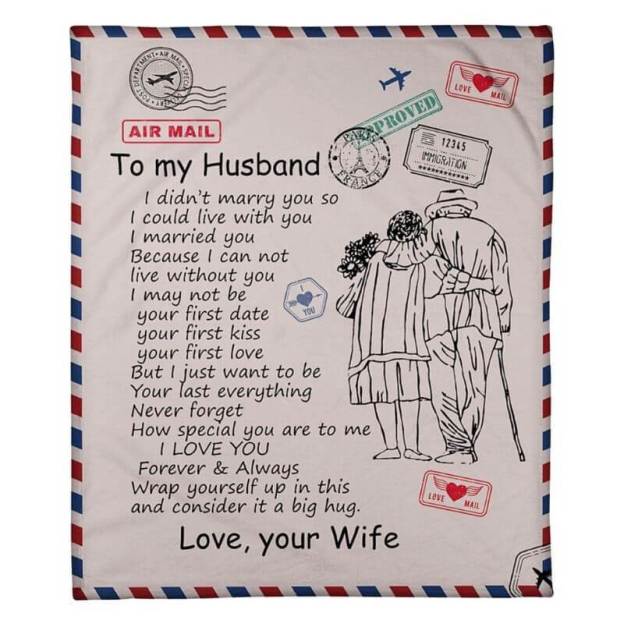 POST DEPARTMENT • AIR MAIL • SPECIAL DELIVERY
LOVE MAIL
APPROVED
AIR MAIL
PARIS
FRANCE
12345
IMMIGRATION
To my Husband
I didn't marry you so
I could live with you
I married you
Because I can not
live without you
I may not be
your first date
your first kiss
your first love
But I just want to be
Your last everything
Never forget
How special you are to me
I LOVE YOU
Forever & Always
Wrap yourself up in this
and consider it a big hug.
Love, your Wife
I
YOU
LOVE MAIL